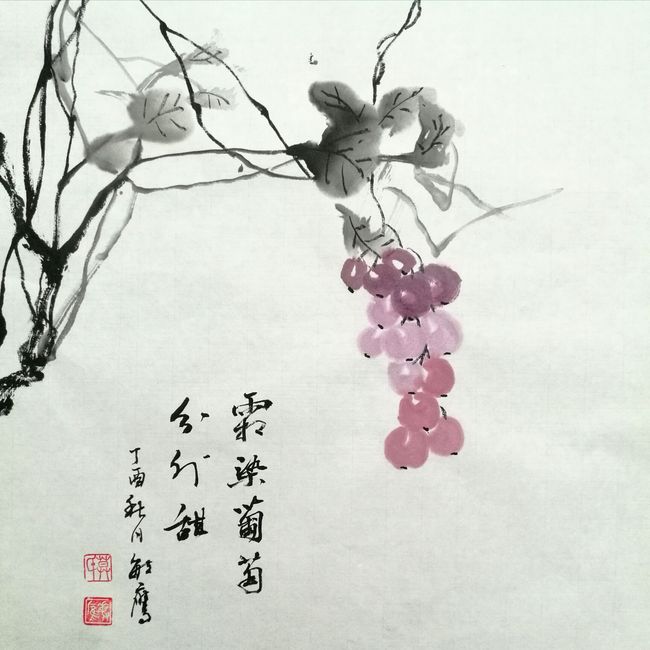 霜染葡萄
分外甜
丁酉秋月敏鹰